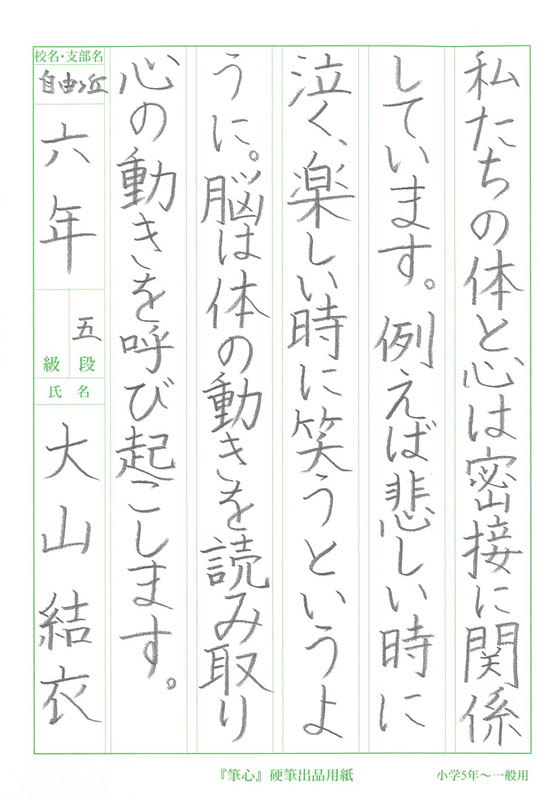 私たちの体と心は密接に関係
しています。例えば悲しい時に
泣く、楽しい時に笑うというよ
うに。脳は体の動きを読み取り
心の動きを呼び起こします。
校名・支部名
自由ヶ丘
六年
五段
級
氏名
大山結衣
『筆心』硬筆出品用紙
小学5年～一般用